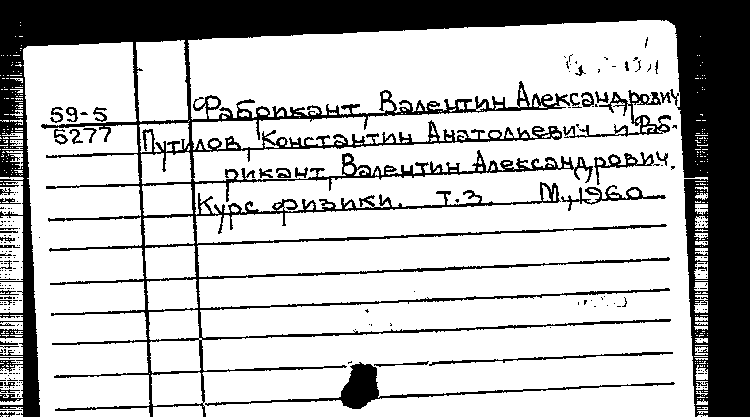 59-5 Фабрикант, Валентин Александрович
5277 Путилов, Константин Анатолиевич и Фаб-
рикант, Валентин Александрович.
Курс физики. т.3. М., 1960